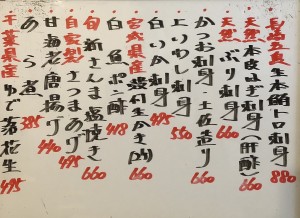 長崎五島 生本鮪トロ刺身 880
天然 本皮はぎ刺身(肝酢) 660
天然 ぶり刺身 660
かつお刺身 土佐造り 660
上いわし刺身 550
白いか刺身 495
宮城県産 殻付生かき(2ケ) 660
白魚ポン酢 418
旬 新さんま塩焼き 660
自家製 さつまあげ 495
甘海老唐揚げ 440
あら煮 385
千葉県産 ゆで落花生 495